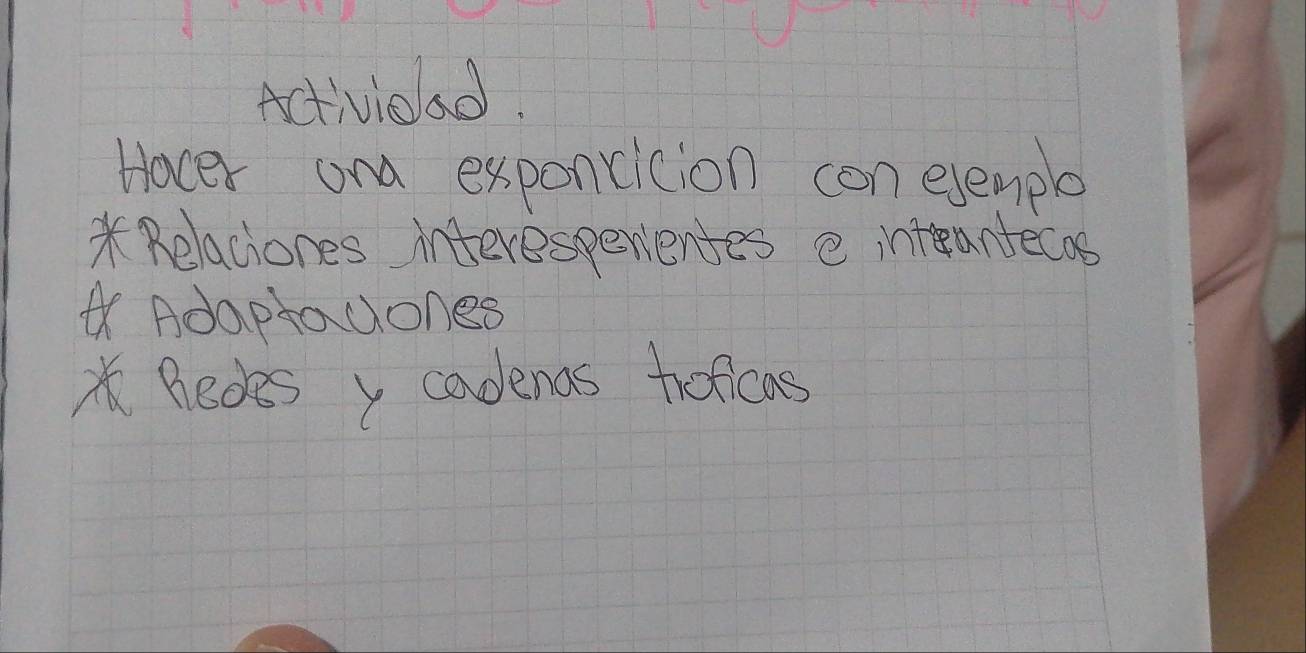 Actividad.
Hacer una exponricion con ejemplo
* Relaciones interespenientes e intrantecas
* Adaptaciones
* Redes y cadenas troficas